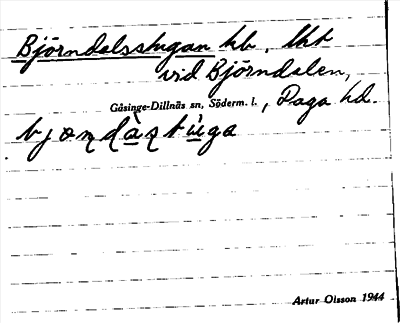 Björndalsstugan hb, lht
vid Björndalen,
Gåsinge-Dillnäs sn, Söderm. l., Daga hd.
bjɷɳdàʂtùga
Artur Olsson 1944